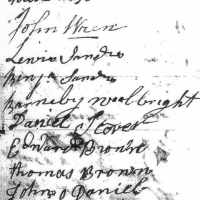 John Wren
Lewis Sandrs
Benja Sandrs
Barneby woolbright
Daniel Stover
Edward Browne
Thomas Brown
John o Daniel